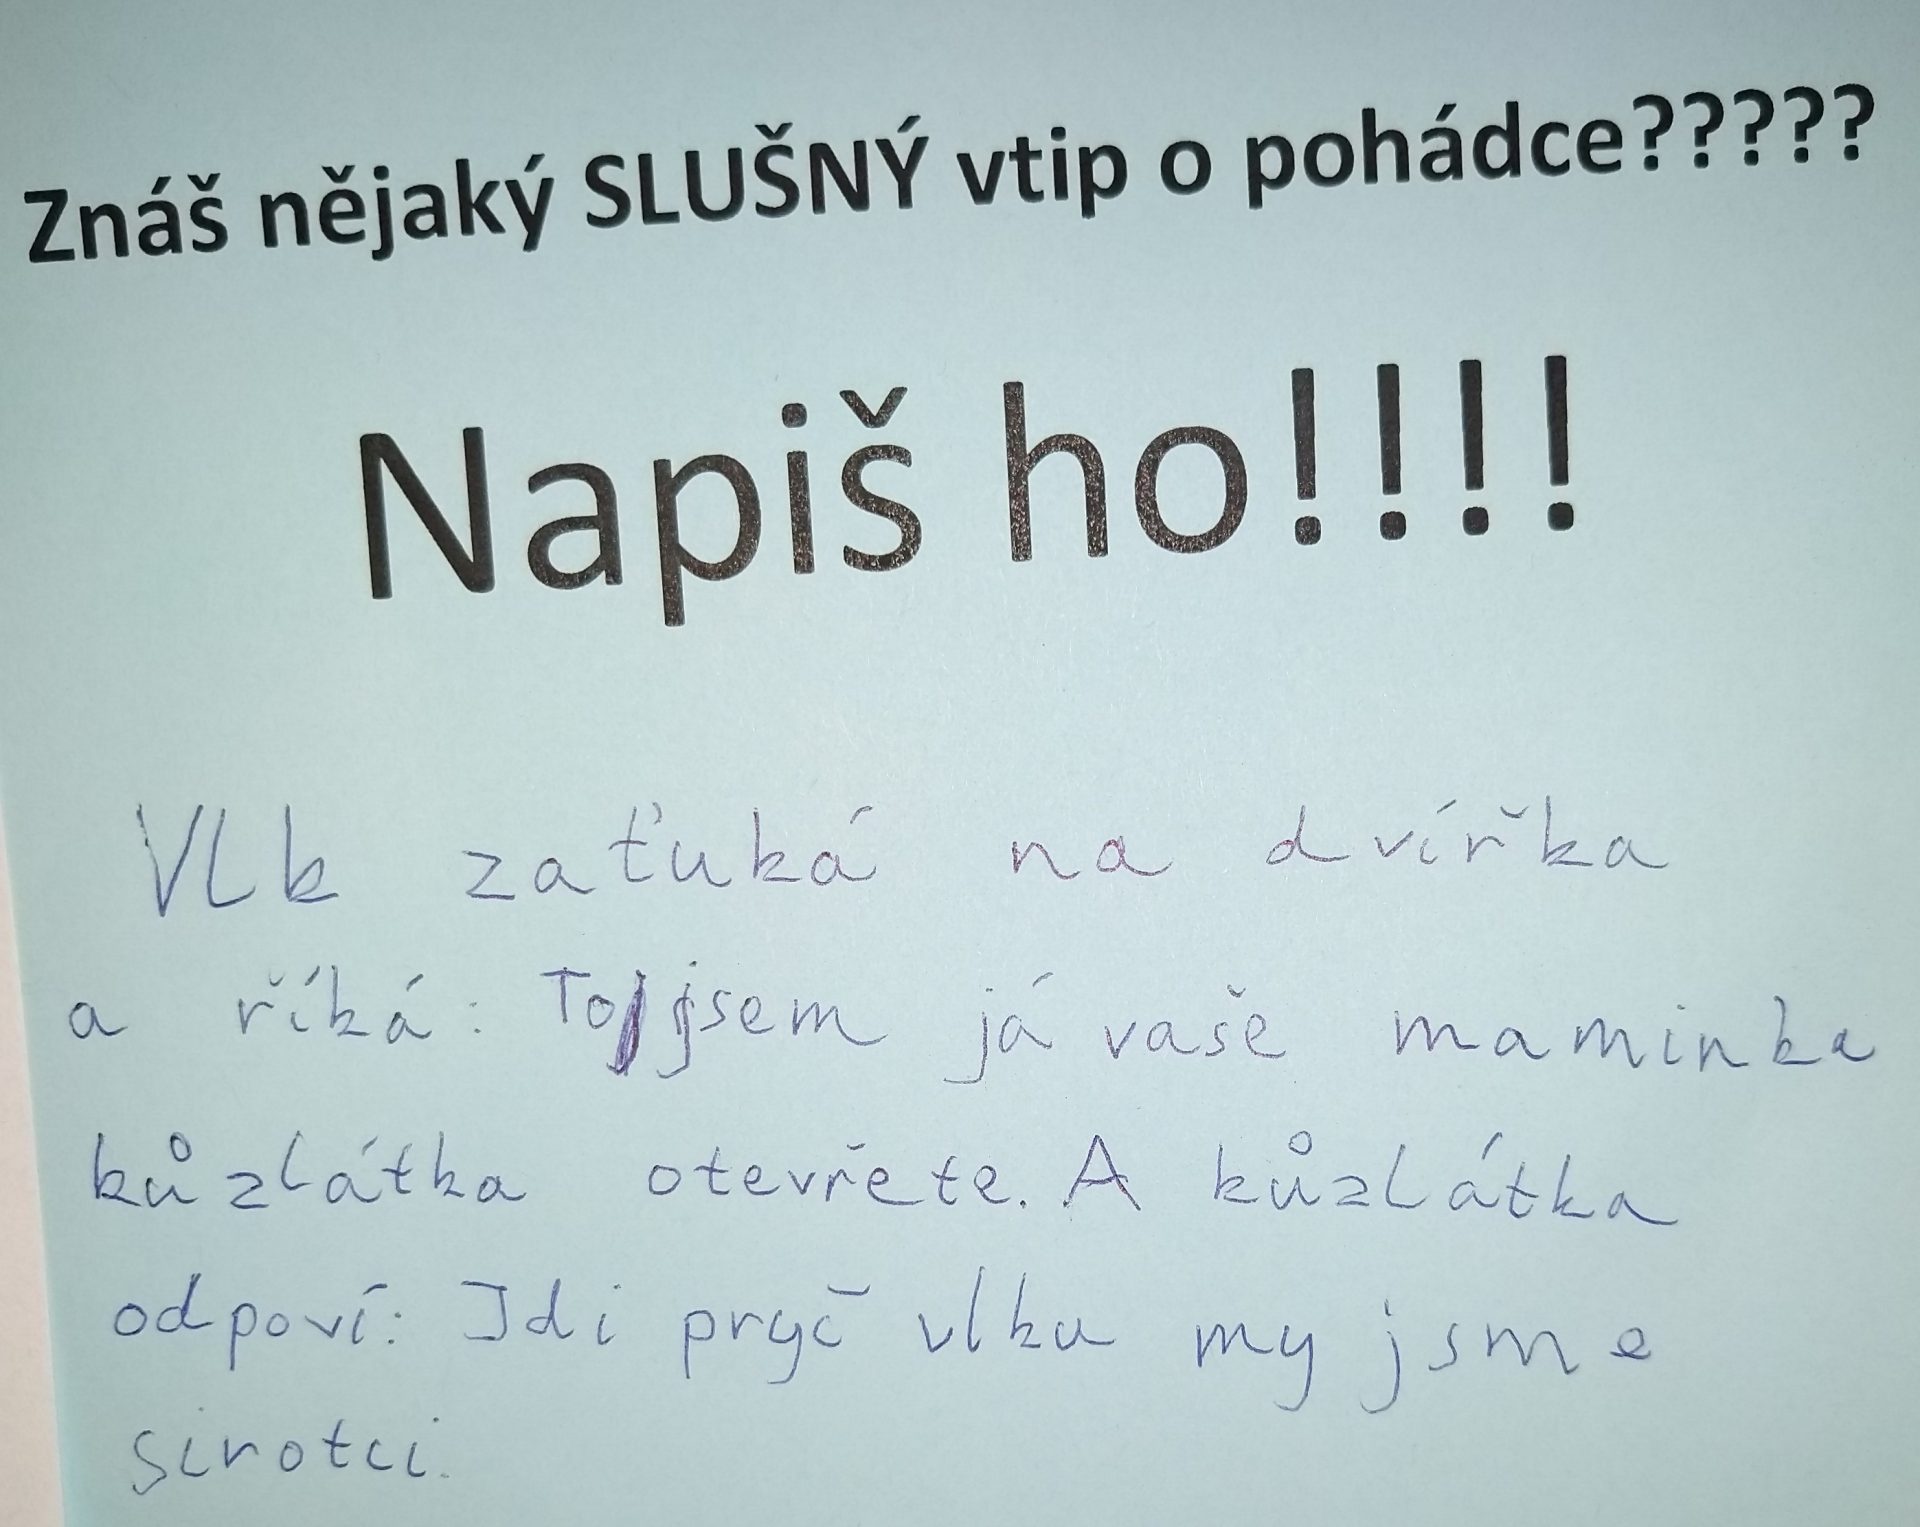 Znáš nějaký SLUŠNÝ vtip o pohádce?????
Napiš ho!!!!
Vlk zaťuká na dvířka
a říká: To jsem já vaše maminka
kůzlátka otevřete. A kůzlátka
odpoví: Idi pryč vlku my jsme
sirotci.